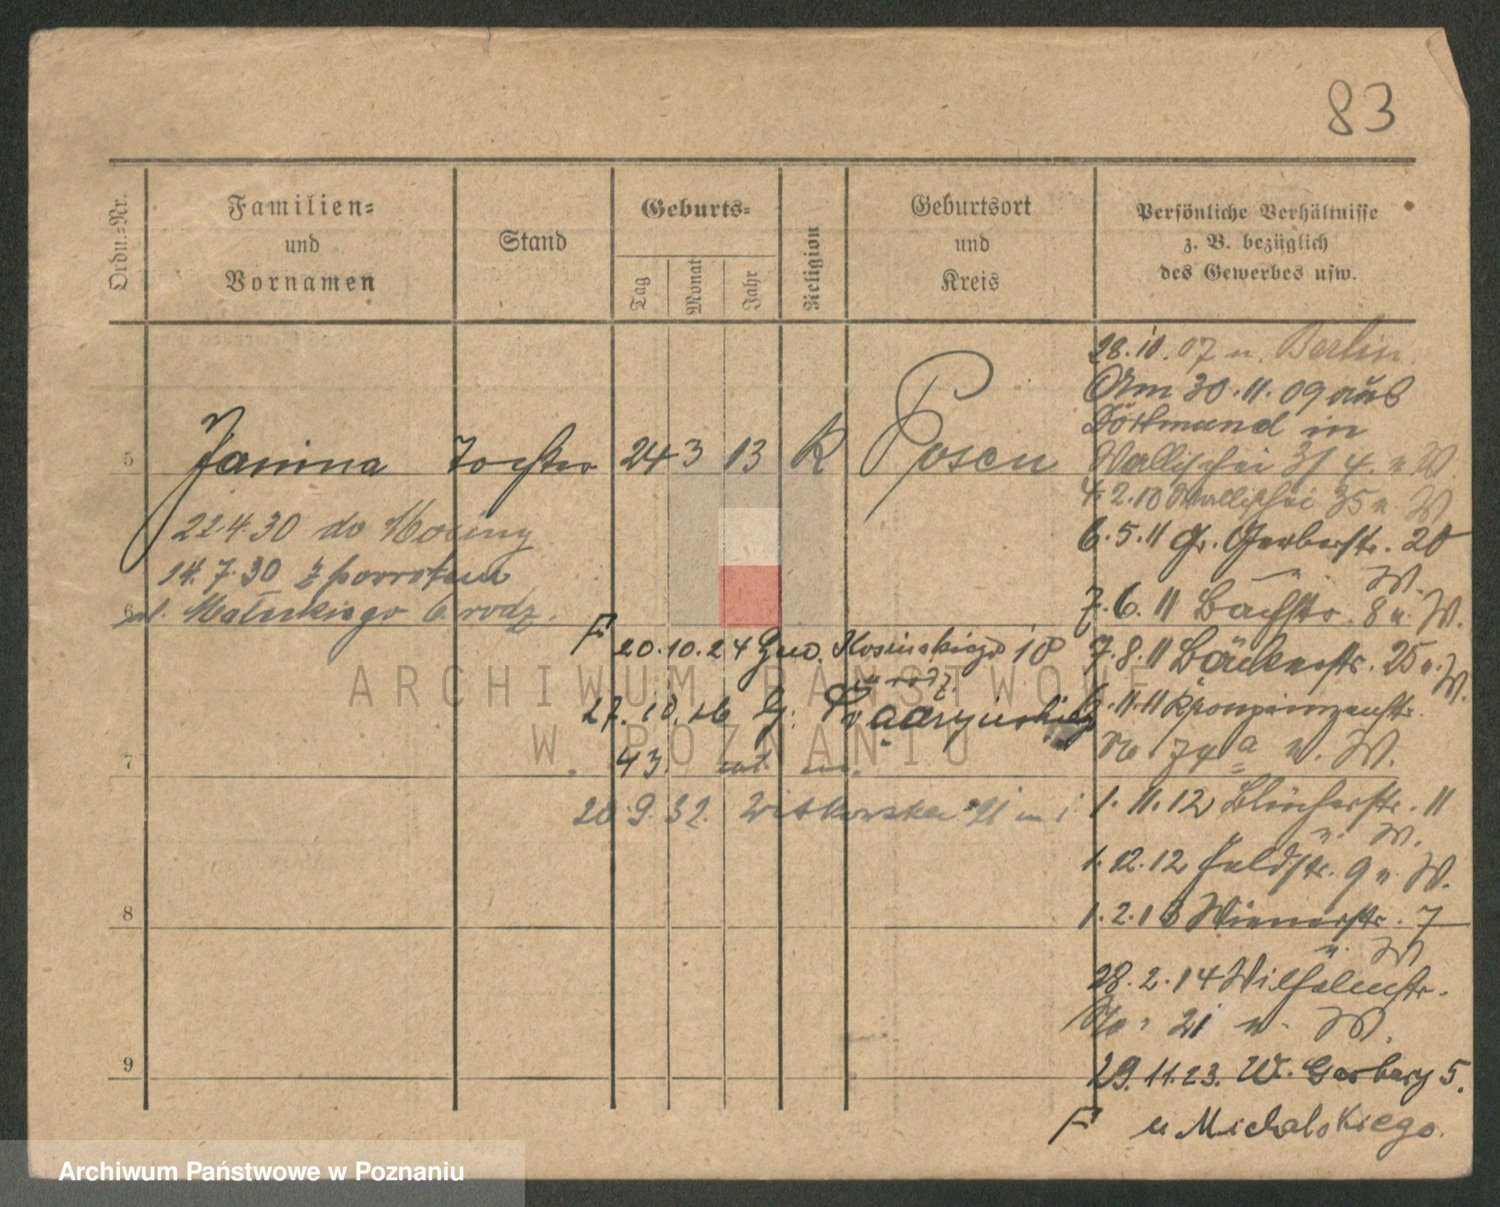 83
Ordn.-Nr.
Familien-
und
Vornamen
Stand
Geburts-
Tag
Monat
Jahr
Religion
Geburtsort
und
Kreis
Persönliche Verhältnisse
z. B. bezüglich
des Gewerbes usw.
5 Janina Tochter 24 3 13 K Posen
22.4.30 do Mosiny
14.7.30 z powrotem
6 ul. Małeckiego 6 rodz.
F 20.10.24 Kosińskiego 18
u rodz.
27.10.26 G.
7 43.
20.9.32. Witkowska
8
9
28.10.07 n. Berlin
Am 30.11.09 aus
Dortmund in
Wallischei 3/4. u W
4.2.10 Wallischei 35 u. W
6.5.11 Gr. Gerberstr. 20
u. W.
7.6.11 Bachstr. 8 u. W.
7.8.11 Bäckerstr. 25 u. W.
6.11.11 Kronprinzenstr.
No 74a u. W.
1.11.12 Blücherstr. 11
u. W.
1.12.12 Feldstr. 9 u. W.
1.2.13 Wienerstr. 7
u. W
28.2.14 Wilhelmstr.
No. 21 u. W.
29.11.23. W. Garbary 5.
F u Michalskiego.
ARCHIWUM PAŃSTWOWE
W POZNANIU
Archiwum Państwowe w Poznaniu